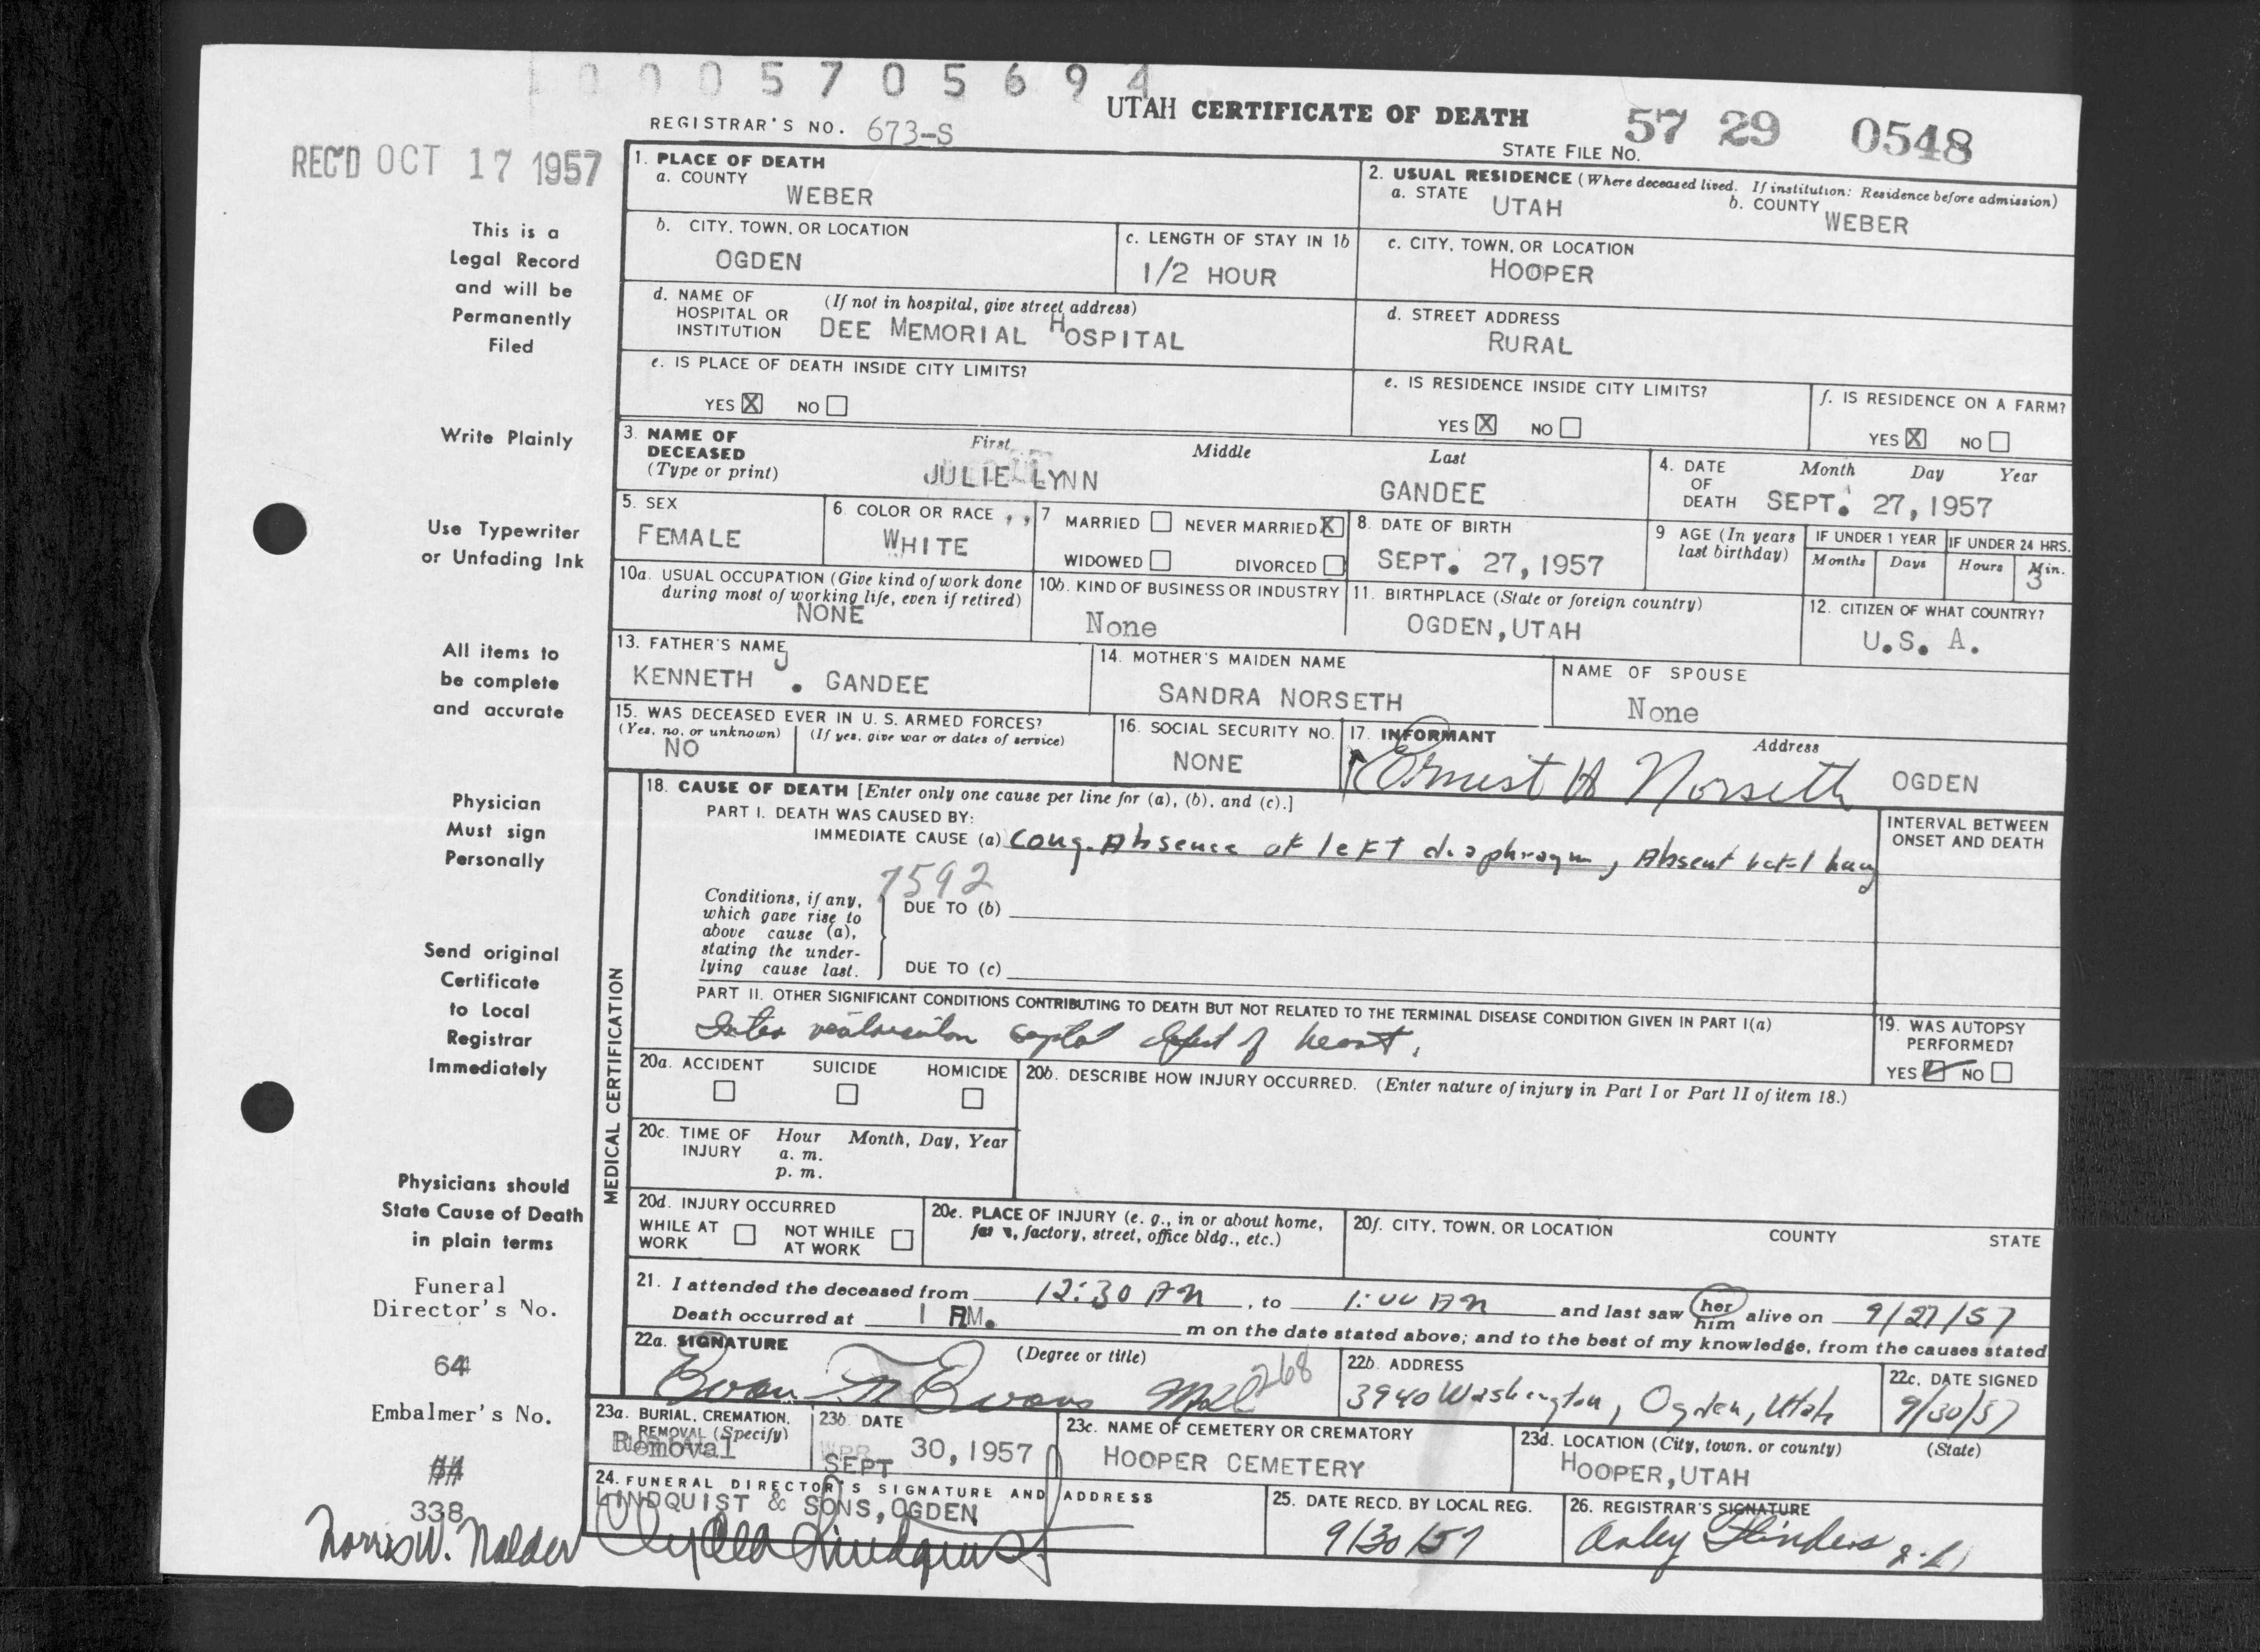 0005705694
UTAH CERTIFICATE OF DEATH
57 29 0548
REGISTRAR'S NO. 673-S
STATE FILE NO.
REC'D OCT 17 1957
This is a
Legal Record
and will be
Permanently
Filed
Write Plainly
Use Typewriter
or Unfading Ink
All items to
be complete
and accurate
Physician
Must sign
Personally
Send original
Certificate
to Local
Registrar
Immediately
Physicians should
State Cause of Death
in plain terms
Funeral
Director's No.
64
Embalmer's No.
338
Norris W. Nalder
1. PLACE OF DEATH
a. COUNTY
WEBER
2. USUAL RESIDENCE (Where deceased lived. If institution: Residence before admission)
a. STATE UTAH b. COUNTY WEBER
b. CITY, TOWN, OR LOCATION
OGDEN
c. LENGTH OF STAY IN 1b
1/2 HOUR
c. CITY, TOWN, OR LOCATION
HOOPER
d. NAME OF HOSPITAL OR INSTITUTION (If not in hospital, give street address)
DEE MEMORIAL HOSPITAL
d. STREET ADDRESS
RURAL
e. IS PLACE OF DEATH INSIDE CITY LIMITS?
YES X NO
e. IS RESIDENCE INSIDE CITY LIMITS?
YES X NO
f. IS RESIDENCE ON A FARM?
YES X NO
3. NAME OF DECEASED (Type or print)
First Middle Last
JULIE LYNN GANDEE
4. DATE OF DEATH
Month Day Year
SEPT. 27, 1957
5. SEX
FEMALE
6. COLOR OR RACE
WHITE
7 MARRIED NEVER MARRIED X
WIDOWED DIVORCED
8. DATE OF BIRTH
SEPT. 27, 1957
9 AGE (In years last birthday)
IF UNDER 1 YEAR
Months Days
IF UNDER 24 HRS.
Hours Min.
3
10a. USUAL OCCUPATION (Give kind of work done during most of working life, even if retired)
NONE
10b. KIND OF BUSINESS OR INDUSTRY
None
11. BIRTHPLACE (State or foreign country)
OGDEN, UTAH
12. CITIZEN OF WHAT COUNTRY?
U.S. A.
13. FATHER'S NAME
KENNETH J. GANDEE
14. MOTHER'S MAIDEN NAME
SANDRA NORSETH
NAME OF SPOUSE
None
15. WAS DECEASED EVER IN U. S. ARMED FORCES?
(Yes, no, or unknown) (If yes, give war or dates of service)
NO
16. SOCIAL SECURITY NO.
NONE
17. INFORMANT Address
Ernest H Norseth OGDEN
MEDICAL CERTIFICATION
18. CAUSE OF DEATH [Enter only one cause per line for (a), (b), and (c).]
PART I. DEATH WAS CAUSED BY:
IMMEDIATE CAUSE (a) Cong. Absence of left diaphragm, Absent left lung
INTERVAL BETWEEN ONSET AND DEATH
7592
Conditions, if any, which gave rise to above cause (a), stating the underlying cause last.
DUE TO (b)
DUE TO (c)
PART II. OTHER SIGNIFICANT CONDITIONS CONTRIBUTING TO DEATH BUT NOT RELATED TO THE TERMINAL DISEASE CONDITION GIVEN IN PART I(a)
Inter septal defect of heart.
19. WAS AUTOPSY PERFORMED?
YES NO
20a. ACCIDENT SUICIDE HOMICIDE
20b. DESCRIBE HOW INJURY OCCURRED. (Enter nature of injury in Part I or Part II of item 18.)
20c. TIME OF INJURY Hour Month, Day, Year
a. m.
p. m.
20d. INJURY OCCURRED
WHILE AT WORK NOT WHILE AT WORK
20e. PLACE OF INJURY (e. g., in or about home, farm, factory, street, office bldg., etc.)
20f. CITY, TOWN, OR LOCATION COUNTY STATE
21. I attended the deceased from 12:30 AM, to 1:00 AM and last saw her him alive on 9/27/57
Death occurred at 1 AM. m on the date stated above; and to the best of my knowledge, from the causes stated
22a. SIGNATURE (Degree or title)
Evans 268
22b. ADDRESS
3940 Washington, Ogden, Utah
22c. DATE SIGNED
9/30/57
23a. BURIAL, CREMATION, REMOVAL (Specify)
Removal
23b. DATE
SEPT 30, 1957
23c. NAME OF CEMETERY OR CREMATORY
HOOPER CEMETERY
23d. LOCATION (City, town, or county) (State)
HOOPER, UTAH
24. FUNERAL DIRECTOR'S SIGNATURE AND ADDRESS
LINDQUIST & SONS, OGDEN
Lindquist
25. DATE RECD. BY LOCAL REG.
9/30/57
26. REGISTRAR'S SIGNATURE
Flinders